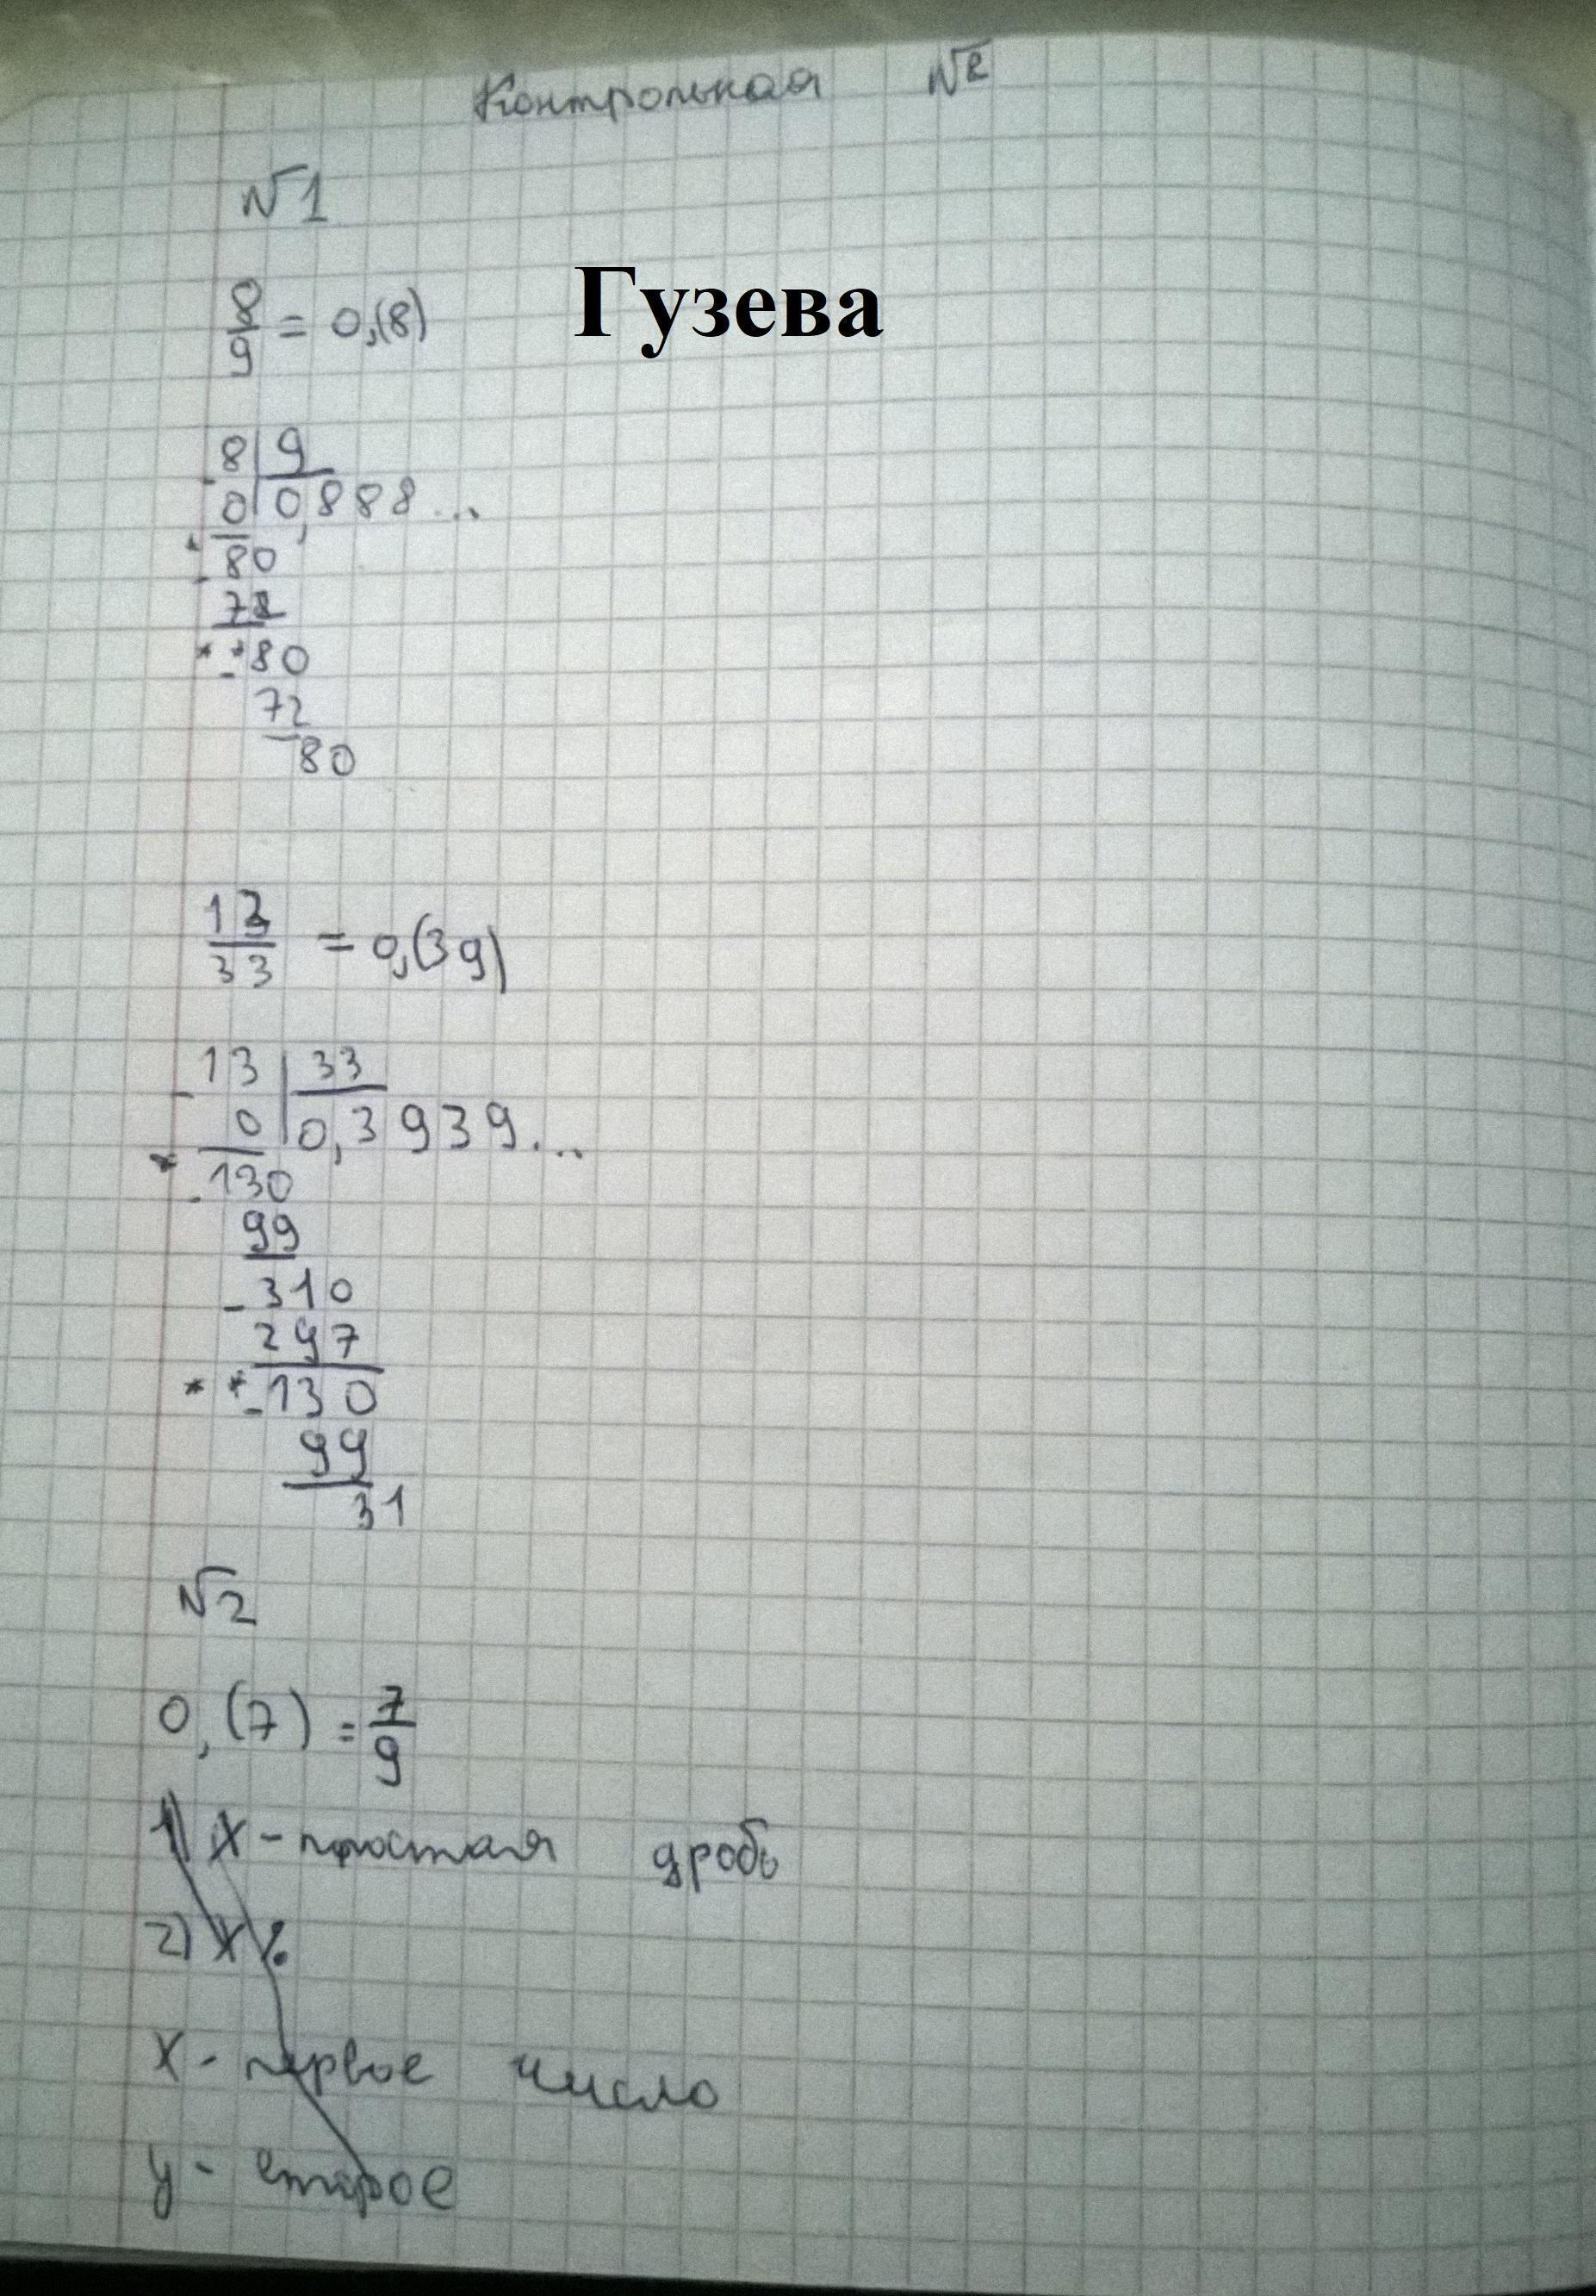 Контрольная №2
№1
Гузева
8/9 = 0,(8)
- 8 | 9
0 | 0,888...
* - 80
72
* * - 80
72
80
13/33 = 0,(39)
- 13 | 33
0 | 0,3939...
* - 130
99
- 310
297
* * - 130
99
31
№2
0,(7) = 7/9
1) х - простая дробь
2) х
х - первое число
у - второе